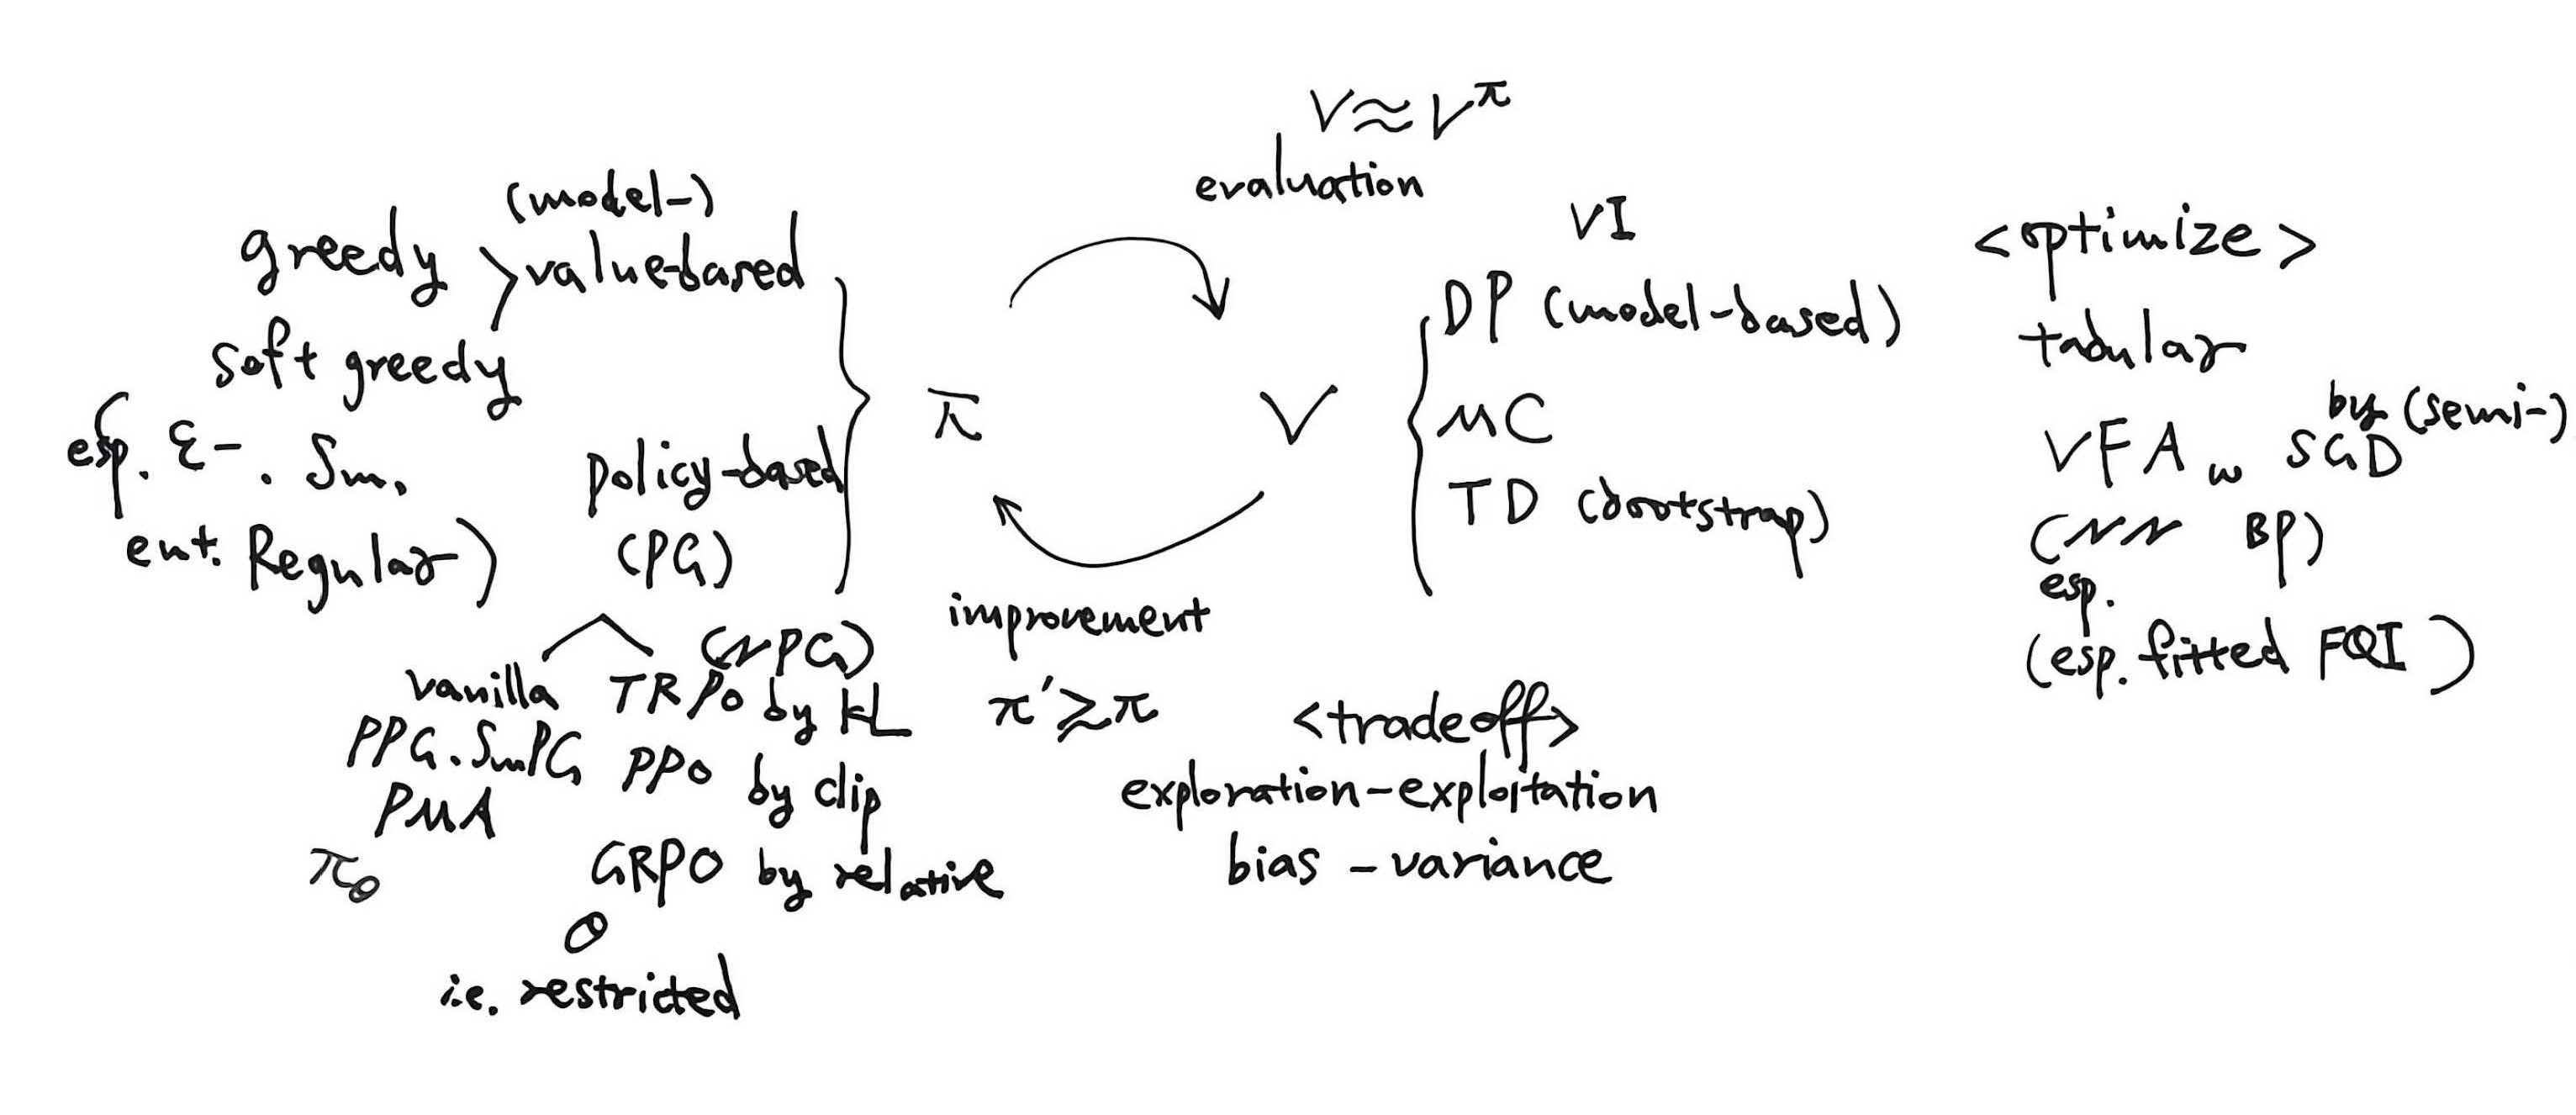 V≈V^π
evaluation
(model-)
greedy > value-based
soft greedy
(esp. ε-. Sm.
ent. Regular)
policy-based
(PG)
(NPG)
vanilla TRPO by KL
PPG. SmPG PPO by clip
PMA
π_θ
GRPO by relative
θ
i.e. restricted
π
V
improvement
π'≳π
VI
DP (model-based)
MC
TD (bootstrap)
<tradeoff>
exploration-exploitation
bias - variance
<optimize>
tabular
by (semi-)
VFA w SGD
(NN BP)
esp.
(esp. fitted FQI)